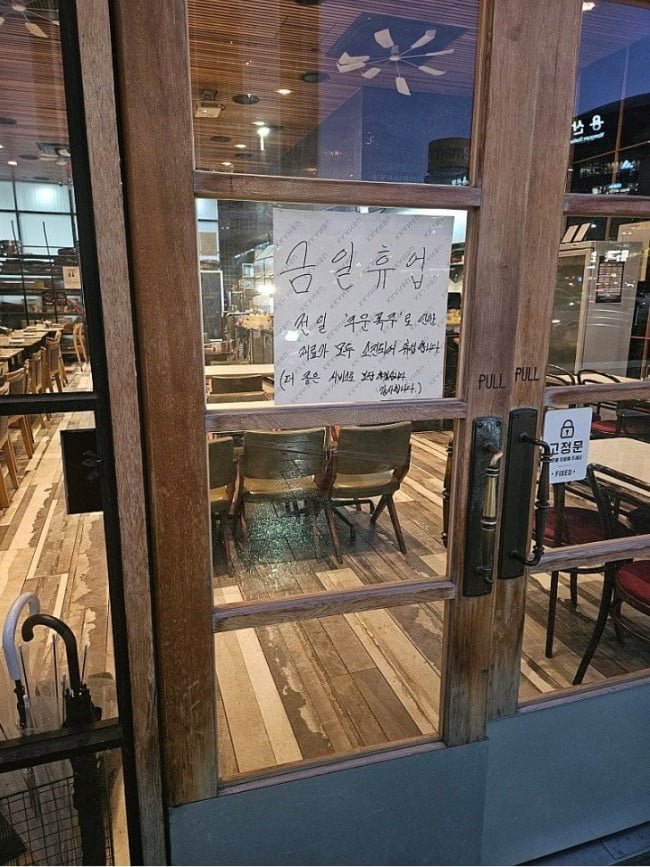 용산
금일휴업
전일 '주문폭주'로 인한
재료가 모두 소진되어 휴업합니다.
(더 좋은 서비스로 보답하겠습니다
감사합니다.)
PULL PULL
고정문
FIXED